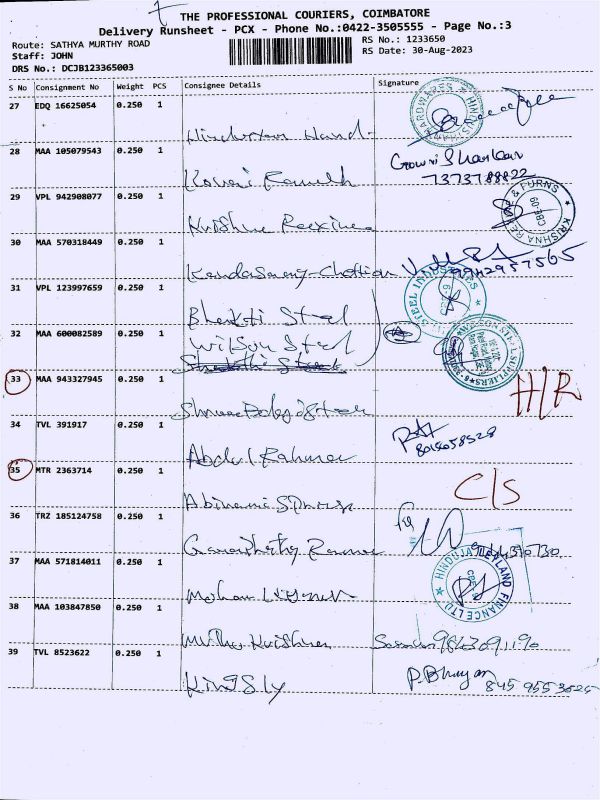 7
THE PROFESSIONAL COURIERS, COIMBATORE
Delivery Runsheet - PCX - Phone No.:0422-3505555 - Page No.:3
Route: SATHYA MURTHY ROAD RS No.: 1233650
Staff: JOHN RS Date: 30-Aug-2023
DRS No.: DCJB123365003
S No Consignment No Weight PCS Consignee Details Signature
27 EDQ 16625054 0.250 1
Hindustan Hard
28 MAA 105079543 0.250 1 Gowri Shankar
Kovai Ramesh 7373788822
29 VPL 942908077 0.250 1
Krishna Rexine
30 MAA 570318449 0.250 1
Kandasamy Chettiar 9942957565
31 VPL 123997659 0.250 1
Bhakti Steel
32 MAA 600082589 0.250 1
Wilson Steel
33 MAA 943327945 0.250 1 H/R
Shree Balaji Steel
34 TVL 391917 0.250 1
Abdul Rahman 8015058528
35 MTR 2363714 0.250 1 C/S
Abirami
36 TRZ 185124758 0.250 1 for
37 MAA 571814011 0.250 1 HINDUJA LEYLAND FINANCE LTD
Mohan
38 MAA 103847850 0.250 1
Muthu Krishnan 9843691190
39 TVL 8523622 0.250 1 P. Bhuyan
Kingsly